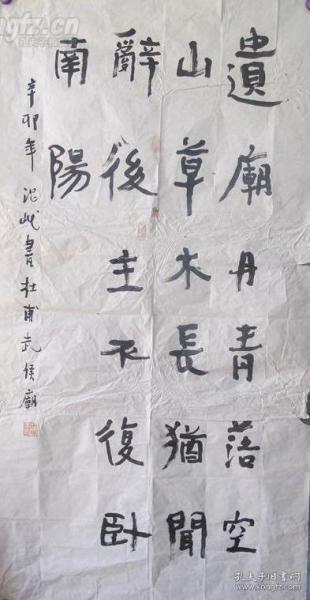 遺廟丹青落空
山草木長猶聞
辭後主不復臥
南陽
辛卯年 书杜甫武侯廟
kongfz.cn
孔夫子旧书网